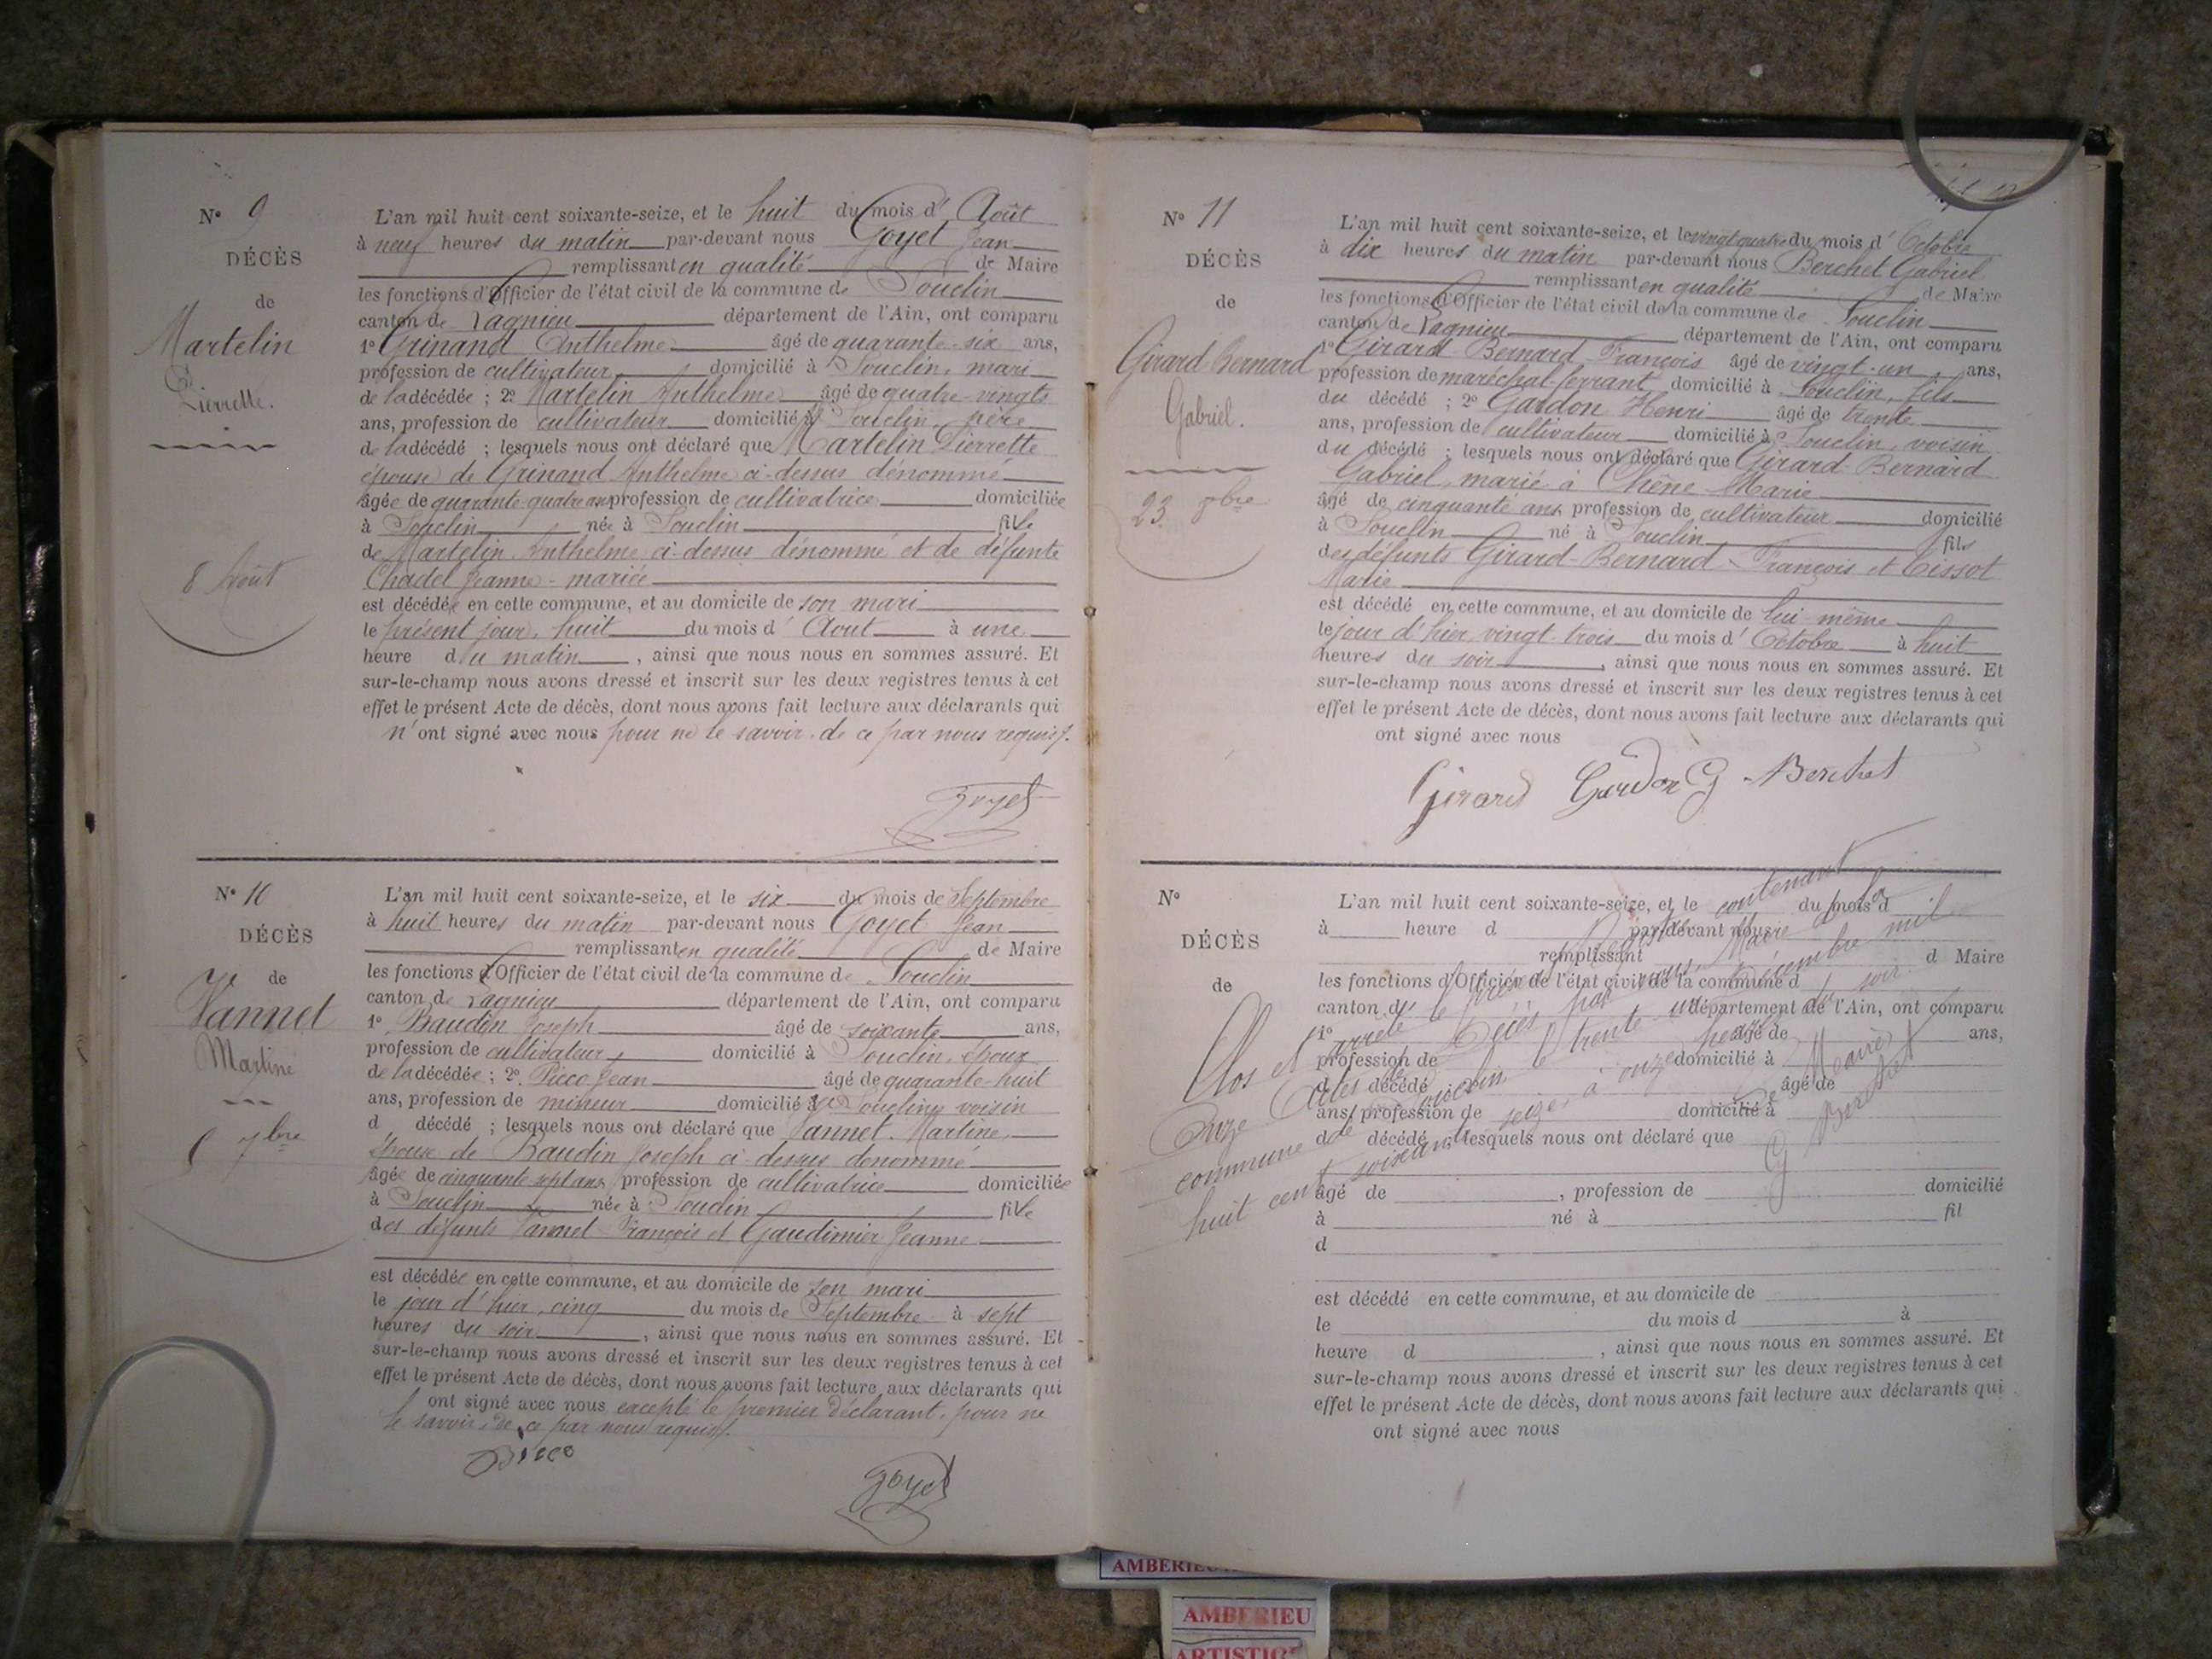 N° 9
DÉCÈS
de
Martelin
Pierrette.
8 Août
L'an mil huit cent soixante-seize, et le huit du mois d' Août
à neuf heures du matin par-devant nous Goyet Jean
remplissant en qualité de Maire
les fonctions d'Officier de l'état civil de la commune de Souclin
canton de Lagnieu département de l'Ain, ont comparu
1° Grinand Anthelme âgé de quarante-six ans,
profession de cultivateur, domicilié à Souclin, mari
de la décédée ; 2° Martelin Anthelme âgé de quatre-vingts
ans, profession de cultivateur domicilié à Souclin, père
de la décédé ; lesquels nous ont déclaré que Martelin Pierrette
épouse de Grinand Anthelme ci-dessus dénommé
âgée de quarante-quatre ans profession de cultivatrice domiciliée
à Souclin née à Souclin fille
de Martelin Anthelme ci-dessus dénommé et de défunte
Chadel Jeanne - mariée
est décédée en cette commune, et au domicile de son mari
le présent jour, huit du mois d' Aout à une
heure du matin , ainsi que nous nous en sommes assuré. Et
sur-le-champ nous avons dressé et inscrit sur les deux registres tenus à cet
effet le présent Acte de décès, dont nous avons fait lecture aux déclarants qui
n'ont signé avec nous pour ne le savoir, de ce par nous requis.
Goyet
N° 10
DÉCÈS
de
Vannet
Martine
5 7bre
L'an mil huit cent soixante-seize, et le six du mois de Septembre
à huit heures du matin par-devant nous Goyet Jean
remplissant en qualité de Maire
les fonctions d'Officier de l'état civil de la commune de Souclin
canton de Lagnieu département de l'Ain, ont comparu
1° Baudin Joseph âgé de soixante ans,
profession de cultivateur, domicilié à Souclin, époux
de la décédée ; 2° Picco Jean âgé de quarante-huit
ans, profession de mineur domicilié à Souclin, voisin
d décédé ; lesquels nous ont déclaré que Vannet Martine,
épouse de Baudin Joseph ci-dessus dénommé
âgée de cinquante sept ans, profession de cultivatrice domiciliée
à Souclin née à Souclin fille
des défunts Vannet François et Gaudimier Jeanne
est décédée en cette commune, et au domicile de son mari
le jour d'hier, cinq du mois de Septembre à sept
heures du soir , ainsi que nous nous en sommes assuré. Et
sur-le-champ nous avons dressé et inscrit sur les deux registres tenus à cet
effet le présent Acte de décès, dont nous avons fait lecture aux déclarants qui
ont signé avec nous excepté le premier déclarant, pour ne
le savoir, de ce par nous requis.
Picco
Goyet
N° 11
DÉCÈS
de
Girard-Bernard
Gabriel.
23 8bre
L'an mil huit cent soixante-seize, et le vingt quatre du mois d' Octobre
à dix heures du matin par-devant nous Berchet Gabriel
remplissant en qualité de Maire
les fonctions d'Officier de l'état civil de la commune de Souclin
canton de Lagnieu département de l'Ain, ont comparu
1° Girard-Bernard François âgé de vingt-un ans,
profession de maréchal-ferrant domicilié à Souclin, fils
du décédé ; 2° Gardon Henri âgé de trente
ans, profession de cultivateur domicilié à Souclin, voisin
du décédé ; lesquels nous ont déclaré que Girard-Bernard
Gabriel, marié à Chêne Marie
âgé de cinquante ans, profession de cultivateur domicilié
à Souclin né à Souclin fils
des défunts Girard-Bernard François et Tissot
Marie
est décédé en cette commune, et au domicile de lui-même
le jour d'hier, vingt-trois du mois d' Octobre à huit
heures du soir , ainsi que nous nous en sommes assuré. Et
sur-le-champ nous avons dressé et inscrit sur les deux registres tenus à cet
effet le présent Acte de décès, dont nous avons fait lecture aux déclarants qui
ont signé avec nous
Girard Gardon G Berchet
N°
DÉCÈS
de
L'an mil huit cent soixante-seize, et le du mois d
à heure d par-devant nous
remplissant d Maire
les fonctions d'Officier de l'état civil de la commune d
canton d département de l'Ain, ont comparu
1° âgé de ans,
profession de domicilié à
d décédé âgé de
ans, profession de domicilié à
d décédé ; lesquels nous ont déclaré que
âgé de , profession de domicilié
à né à fil
d
est décédé en cette commune, et au domicile de
le du mois d à
heure d , ainsi que nous nous en sommes assuré. Et
sur-le-champ nous avons dressé et inscrit sur les deux registres tenus à cet
effet le présent Acte de décès, dont nous avons fait lecture aux déclarants qui
ont signé avec nous
Clos et arrêté le présent Registre contenant
Onze Actes de Décès par nous, Maire de la
commune de Souclin le trente un décembre mil
huit cent soixante seize, à onze heures du soir.
Le Maire
G Berchet
AMBERIEU
AMBERIEU
ARTISTIQ